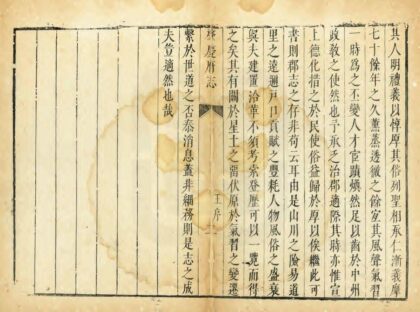 其人明禮義以惇厚其俗烈聖相承仁漸義摩
七十餘年之久薰蒸透徹之餘家其風聲氣習
一時爲之丕變人才宦蹟煥然足以齒於中州
政教之使然也予承乏治郡適際其時亦惟宣
上德化措之於民使俗益歸於厚以俟繼此可
書則郡志之存非苟云耳由是山川之險易道
里之遠邇戶口貢賦之豐耗人物風俗之盛衰
與夫建置沿革不須考索登歷可以一覽而得
之矣其有關於星土之躔伏原於氣習之變遷
繫於世道之否泰消息蓋非細務則是志之成
夫豈適然也哉
序 慶府志
王序